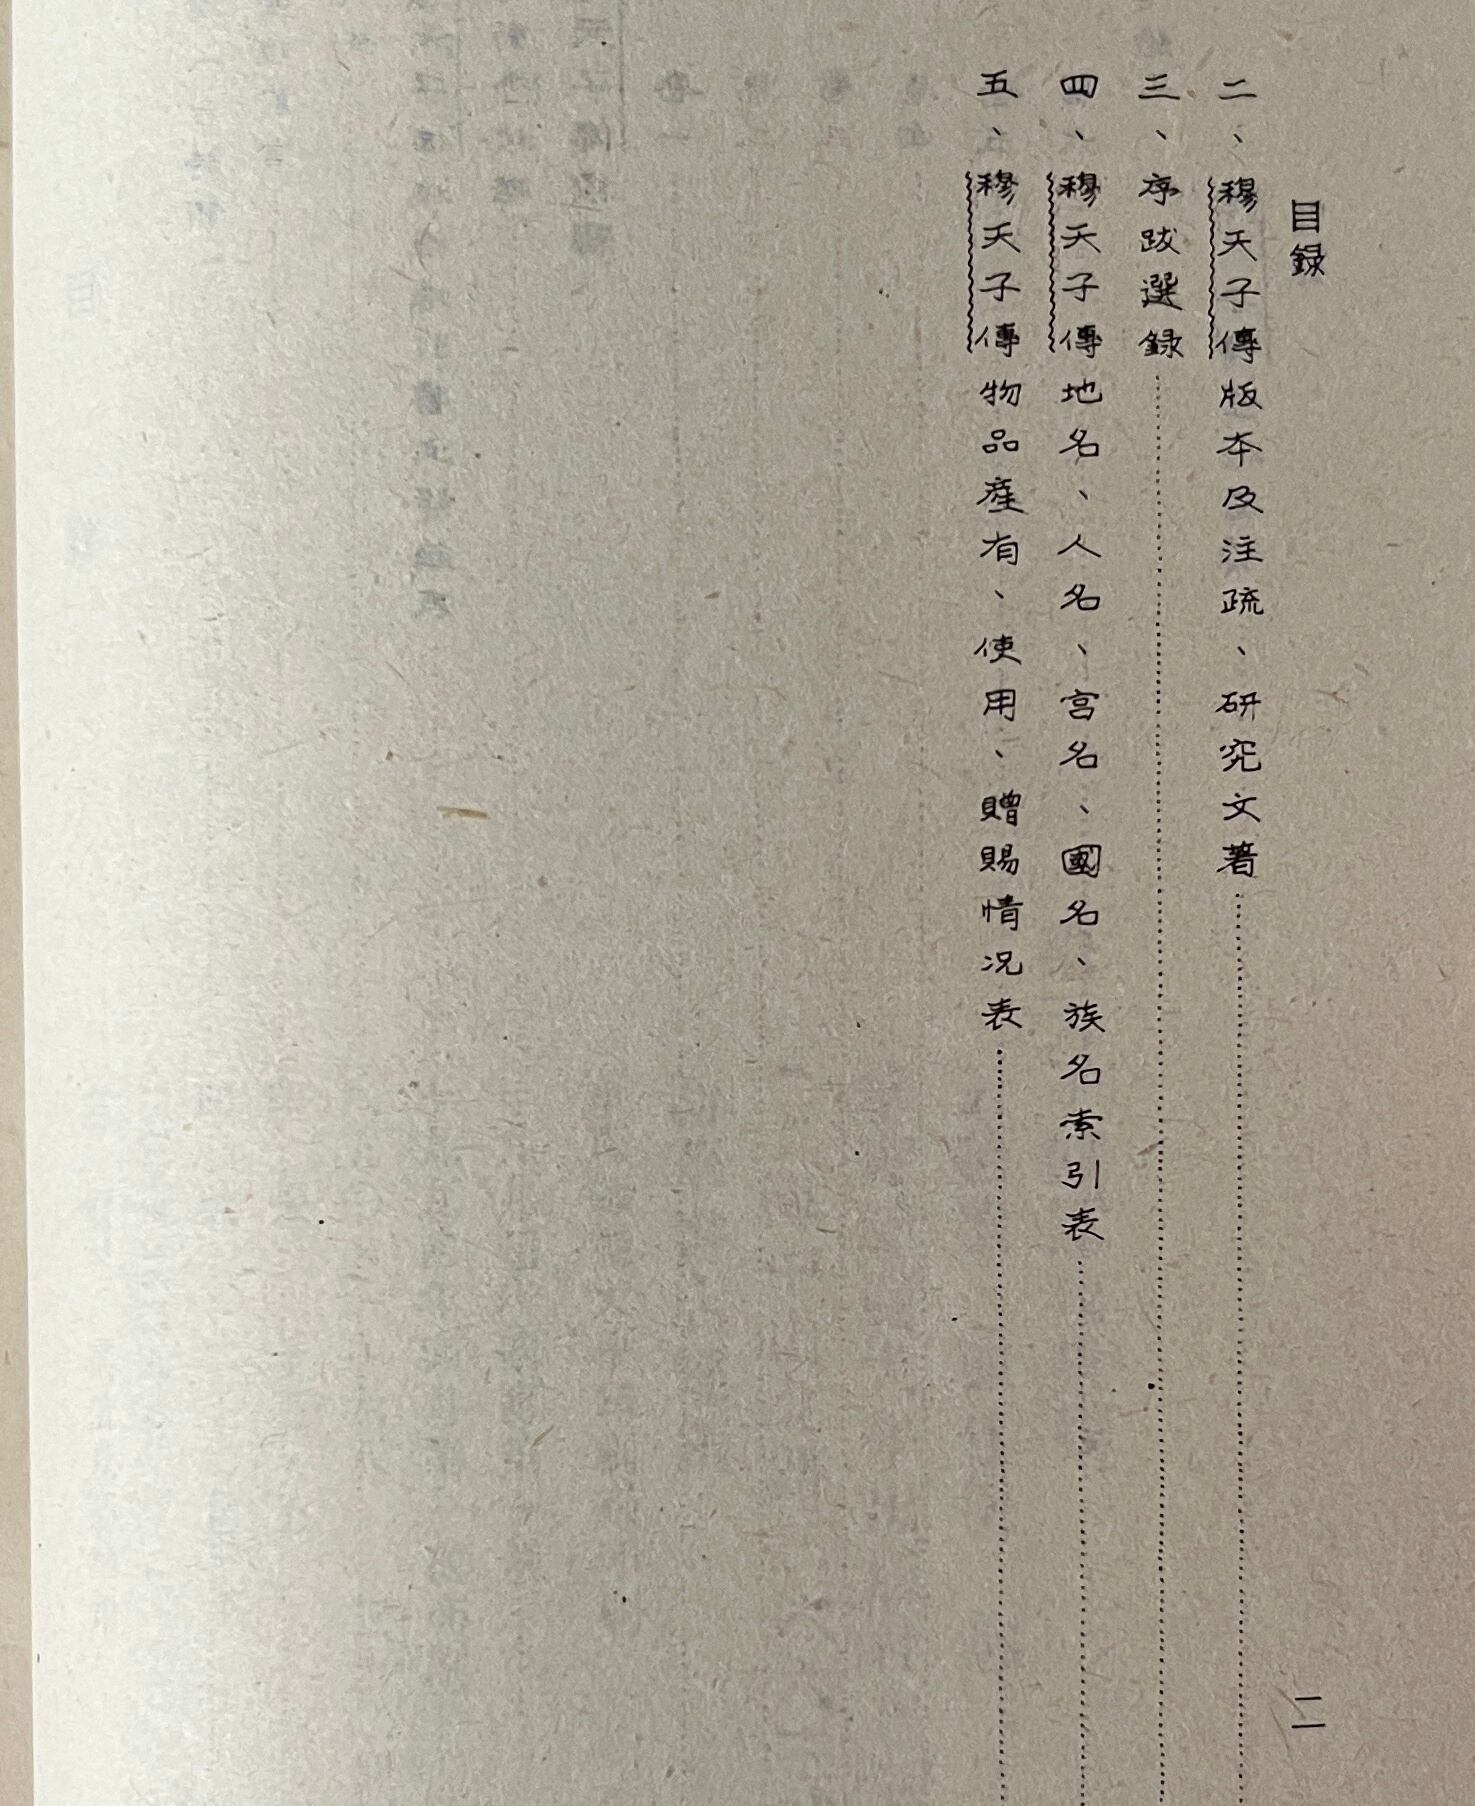 目録
二
二、穆天子傳版本及注疏、研究文著
三、序跋選録
四、穆天子傳地名、人名、宮名、國名、族名索引表
五、穆天子傳物品産有、使用、贈賜情况表